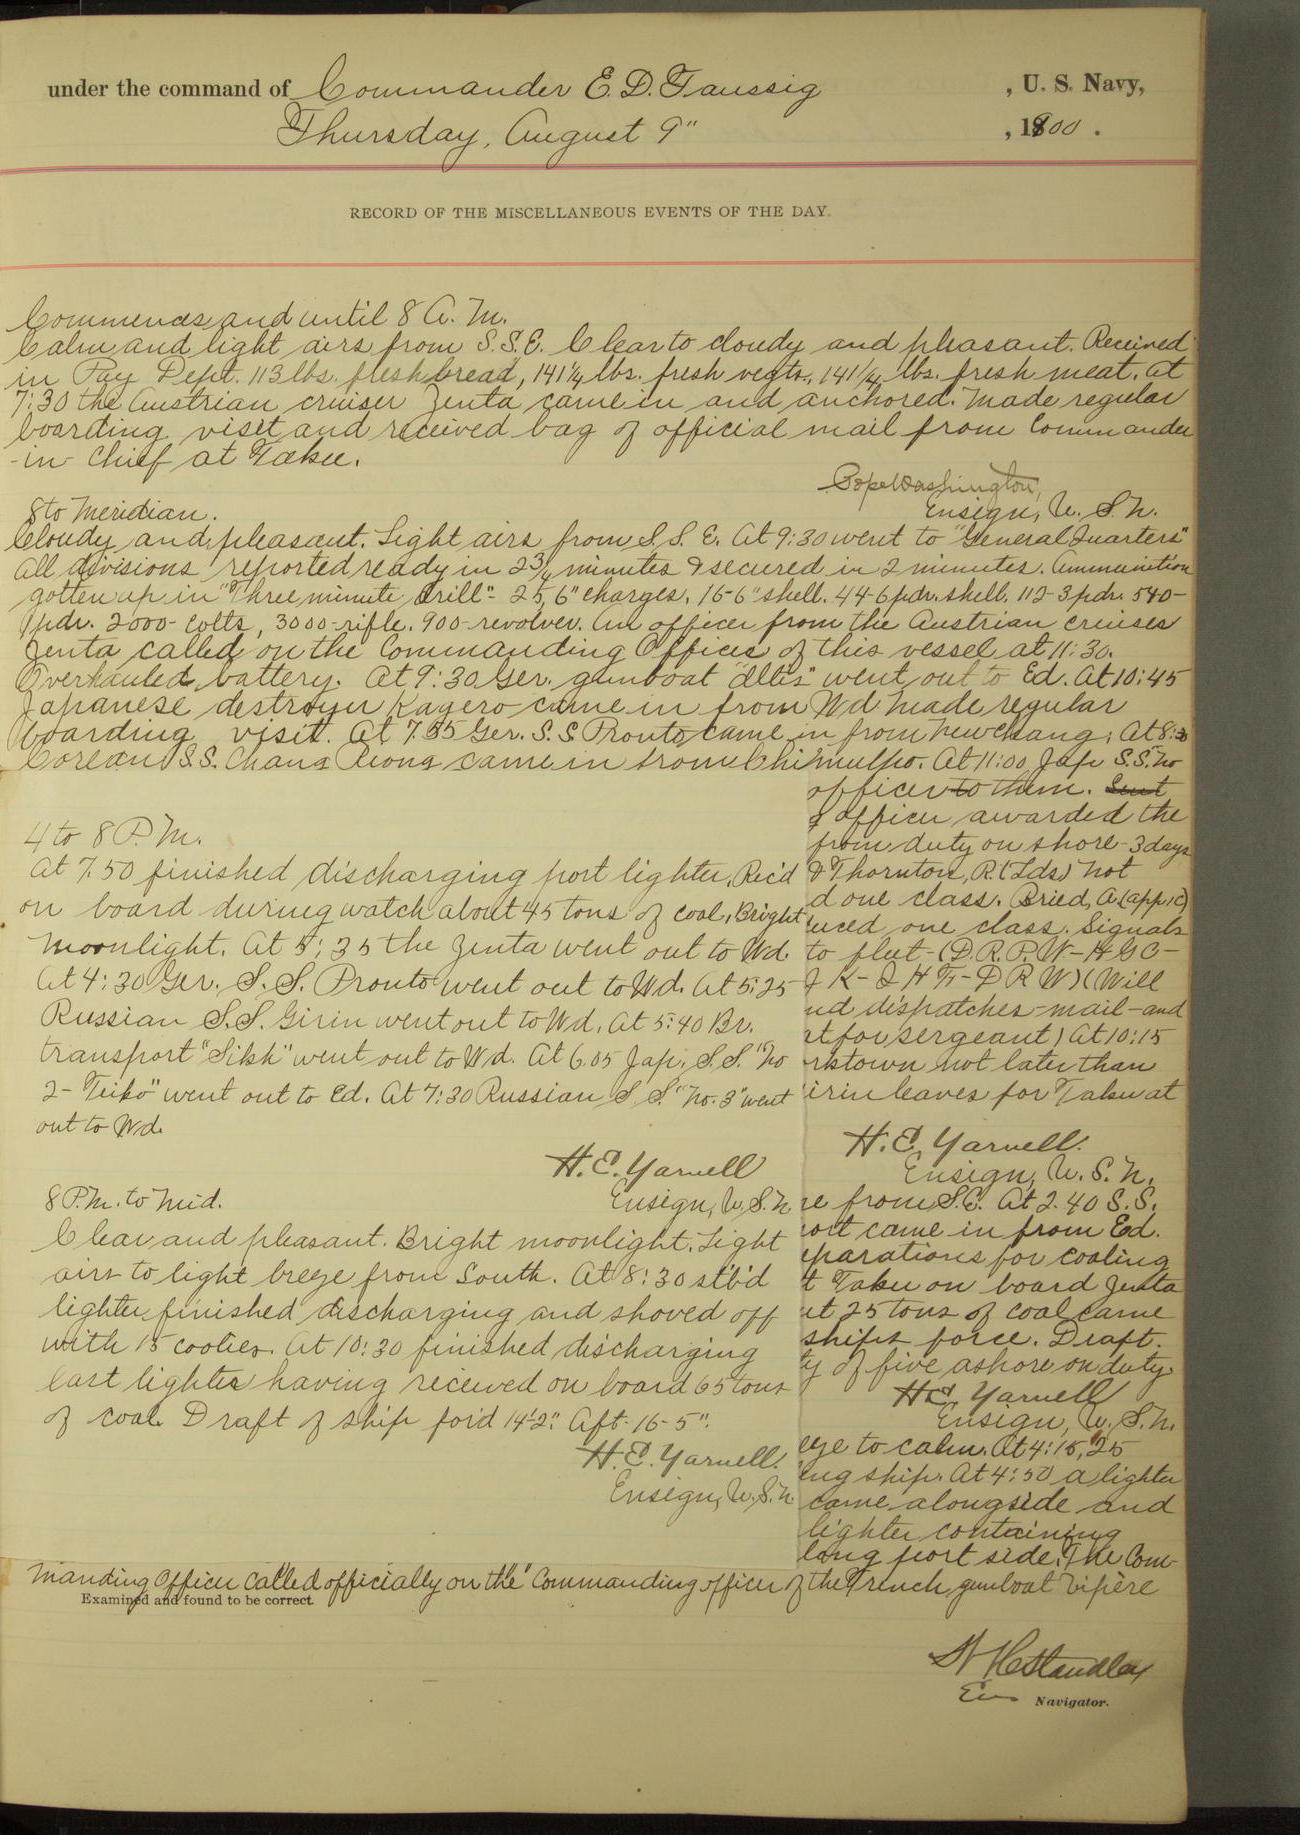 under the command of Commander E. D. Taussig, U. S. Navy,
Thursday, August 9", 1900.
RECORD OF THE MISCELLANEOUS EVENTS OF THE DAY.
Commences and until 8 A. M.
Calm and light airs from S. S. E. Clear to cloudy and pleasant. Received
in Pay Dept. 113 lbs. fresh bread, 141 1/4 lbs. fresh vegts., 141 1/4 lbs. fresh meat. At
7:30 the Austrian cruiser Zenta came in and anchored. Made regular
boarding visit and received bag of official mail from Commander
-in- Chief at Taku.
Pope Washington,
Ensign, U. S. N.
8 to Meridian.
Cloudy and pleasant. Light airs from S. S. E. At 9:30 went to "General Quarters"
All divisions reported ready in 2 3/4 minutes & secured in 2 minutes. Ammunition
gotten up in "Three minute Drill"- 25, 6" charges. 16-6" shell. 44-6 pdr. shell. 112-3 pdr. 540-
1 pdr. 2000- Colts, 3000-rifle. 900-revolver. An officer from the Austrian cruiser
Zenta called on the Commanding Officer of this vessel at 11:30.
Overhauled battery. At 9:30 Ger. gunboat "Iltis" went out to Ed. At 10:45
Japanese destroyer Kagero came in from Wd Made regular
boarding visit. At 7.55 Ger. S. S. Pronto came in from Newchang; At 8:30
Corean S. S. Chang Riong came in from Chimulpo. At 11:00 Jap S.S. "No
officer to them. Sent
g officer awarded the
from duty on shore- 3 days
4 to 8 P. M.
At 7.50 finished discharging port lighter, Rec'd
& Thornton, R. (Lds) not
on board during watch about 45 tons of coal, Bright
d one class. Bried, A. (app 1c)
moonlight. At 5:35 the Zenta went out to Wd.
uced one class. Signals
At 4:30 Ger. S. S. Pronto went out to Wd. At 5:25
to fleet- (D. R. P. W- H G C-
Russian S. S. Girin went out to Wd. At 5:40 Br.
K- I H F- D R W) (Will
transport "Sikh" went out to Wd. At 6.05 Jap. S. S. "No
nd dispatches-mail-and
2- Teiko" went out to Ed. At 7:30 Russian S S. "No. 3" went
at for sergeant) At 10:15
out to Wd.
rktown not later than
irin leaves for Taku at
H. E. Yarnell
Ensign, U. S. N.
H. E. Yarnell.
Ensign, U. S. N.
8 P.M. to Mid.
Clear and pleasant. Bright moonlight. Light
airs to light breeze from South. At 8:30 stb'd
lighter finished discharging and shoved off
with 15 coolies. At 10:30 finished discharging
last lighter having received on board 65 tons
of coal. Draft of ship for'd 14'-2". Aft- 16-5".
H. E. Yarnell.
Ensign, U. S. N.
re from S.E. At 2.40 S. S.
ort came in from Ed.
eparations for coaling
t Taku on board Zenta
ut 25 tons of coal came
ships force. Draft.
ty of five ashore on duty.
H E Yarnell
Ensign, U. S. N.
eze to calm. At 4:15, 25
ing ship. At 4:50 a lighter
came alongside and
lighter containing
long port side. The Com-
manding Officer called officially on the Commanding officer of the French gunboat Vipère
Examined and found to be correct.
W H Standley
Ens
Navigator.